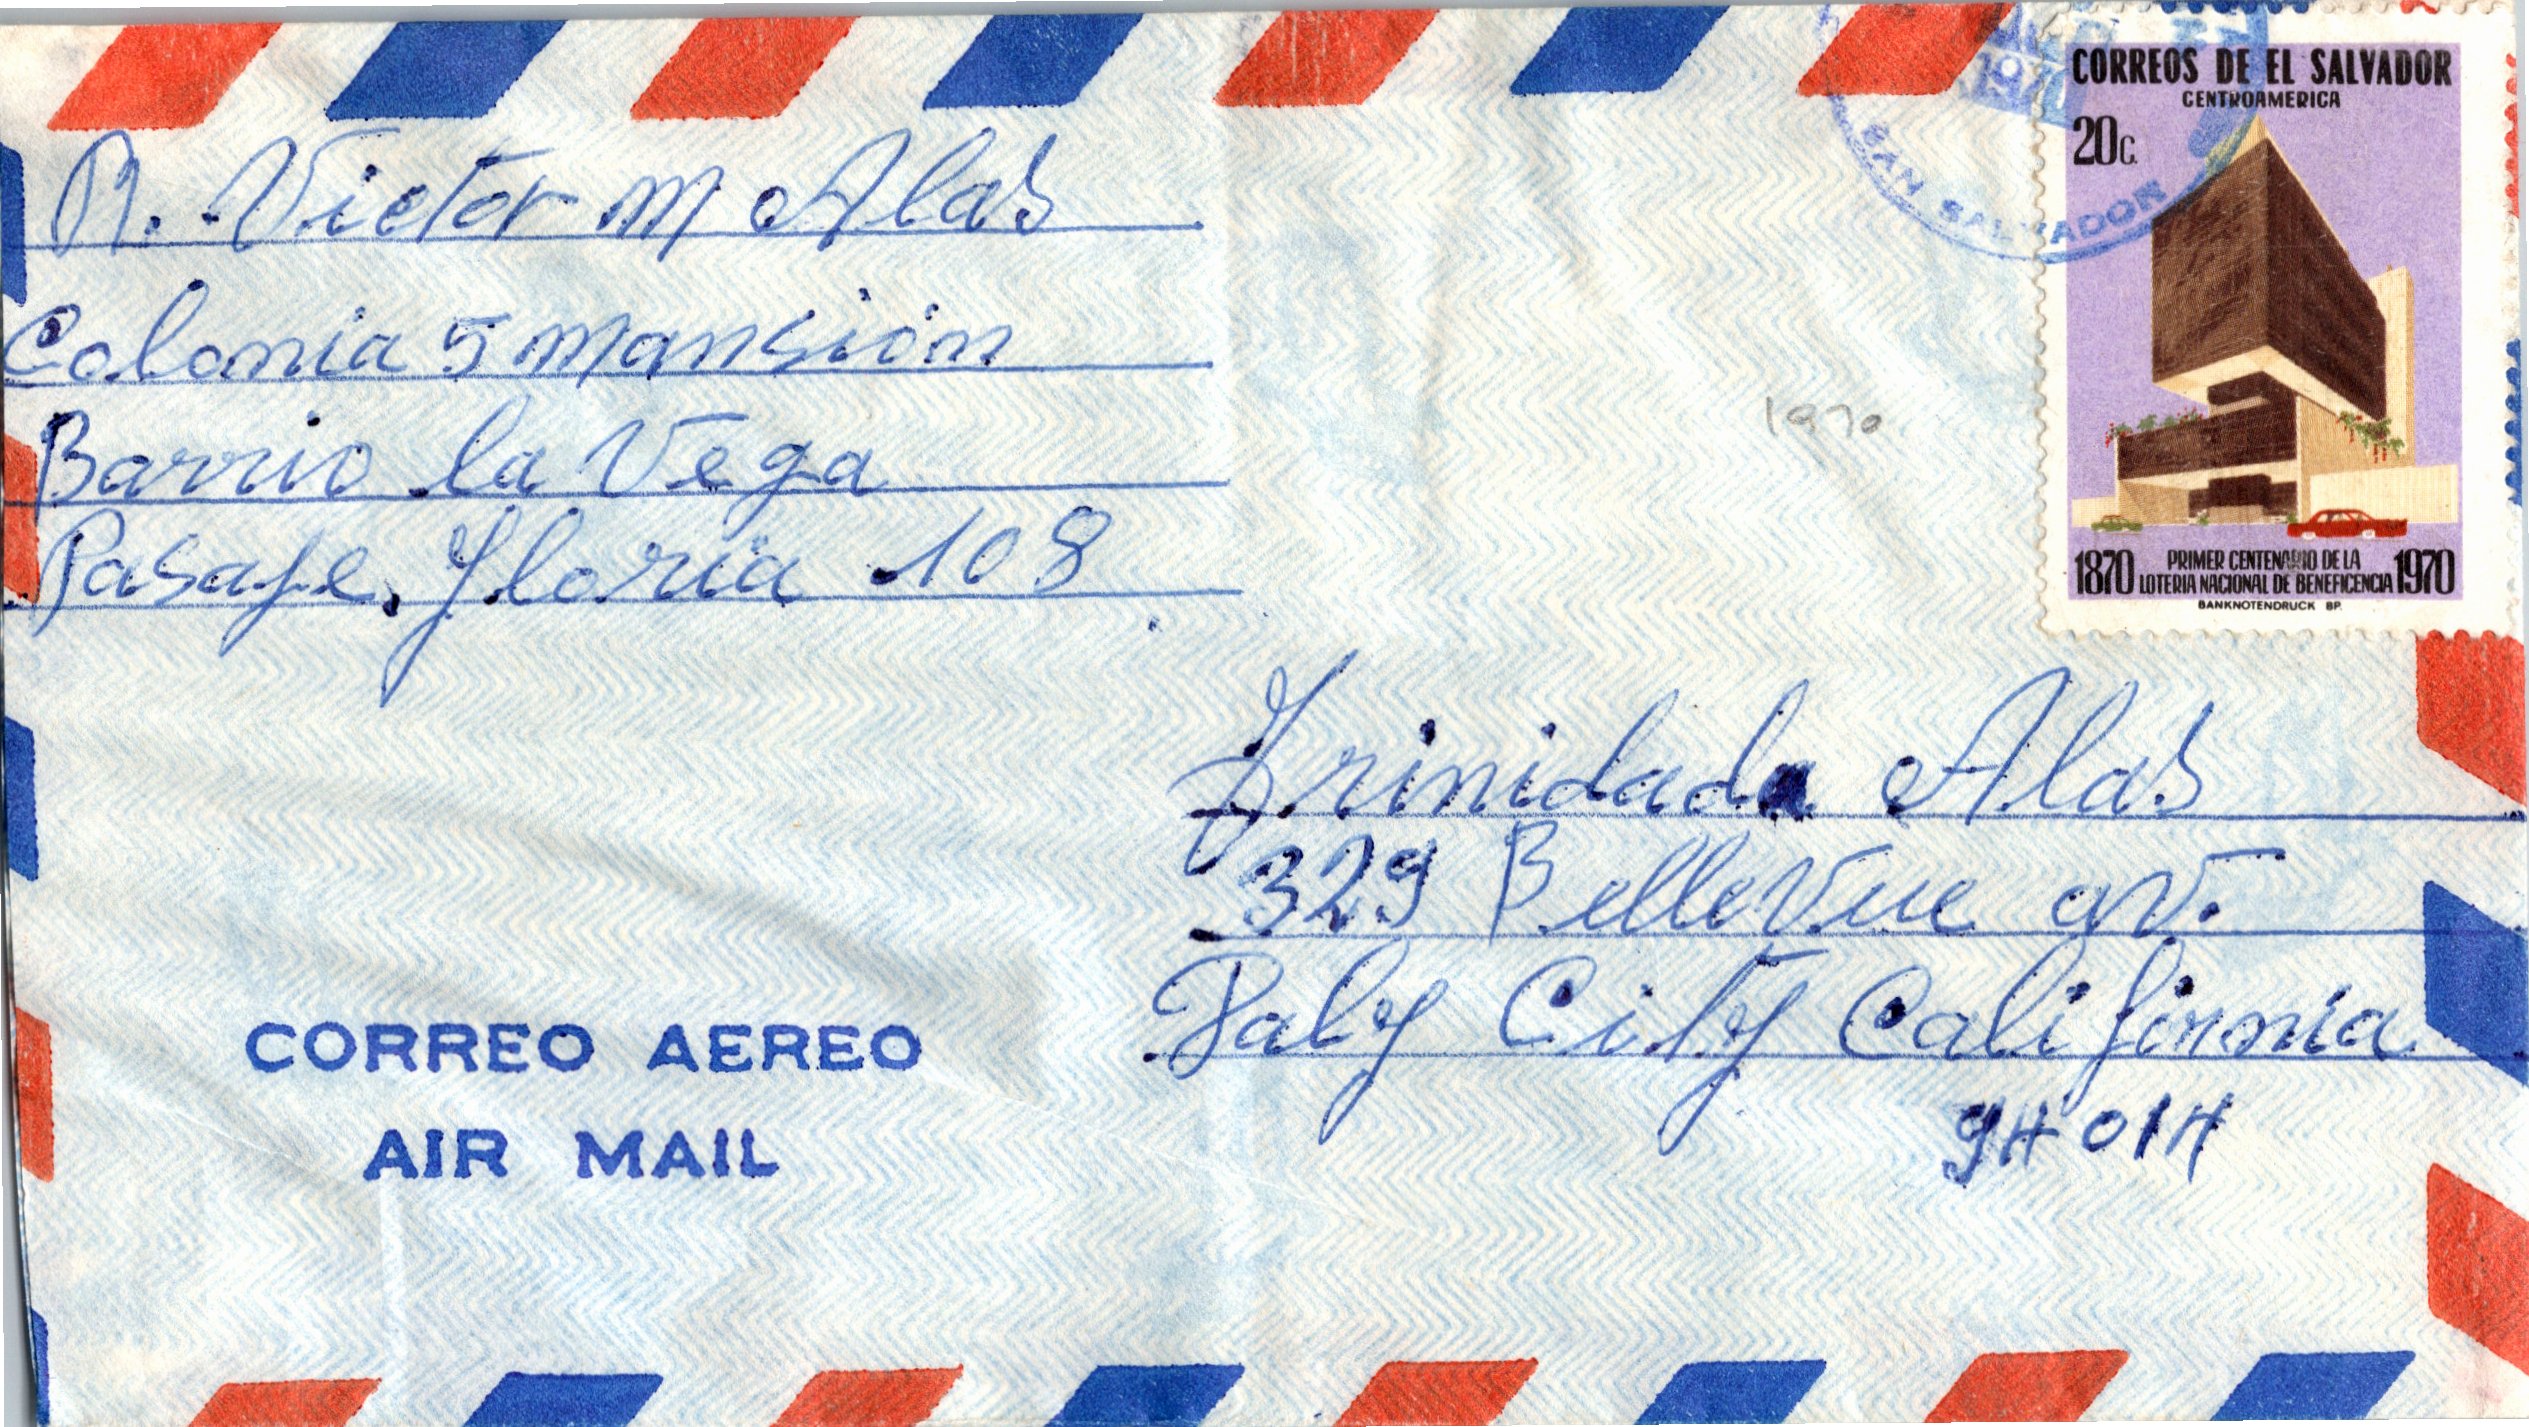 R. Victor M Alas
Colonia 5 mansión
Barrio la Vega
Pasaje, Gloria 108
SAN SALVADOR
CORREOS DE EL SALVADOR
CENTROAMERICA
20c.
1870 PRIMER CENTENARIO DE LA LOTERIA NACIONAL DE BENEFICENCIA 1970
BANKNOTENDRUCK BP.
1970
Trinidada Alas
329 Bellevue av.
Daly City California
94014
CORREO AEREO
AIR MAIL